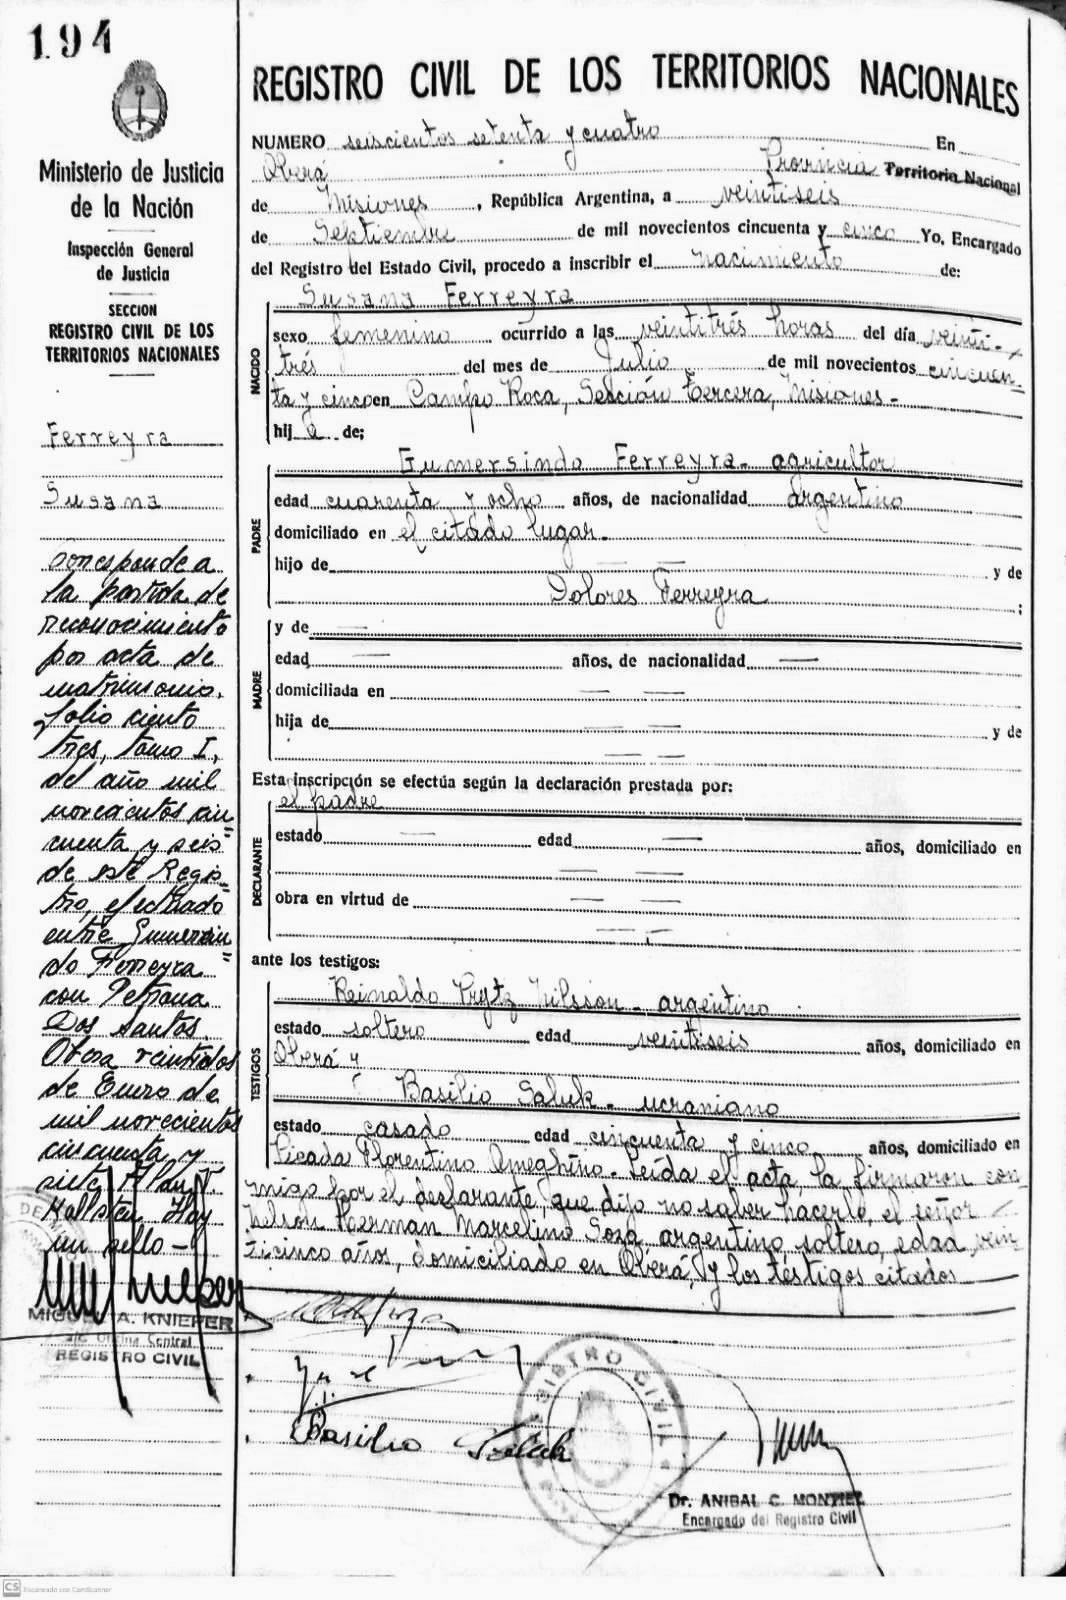 194
Ministerio de Justicia
de la Nación
Inspección General
de Justicia
SECCION
REGISTRO CIVIL DE LOS
TERRITORIOS NACIONALES
Ferreyra
Susana
Corresponde a
la partida de
reconocimiento
por acta de
matrimonio,
folio ciento
tres, tomo I,
del año mil
novecientos cin
cuenta y seis
de este Regis-
tro, efectuado
entre Gumersin
do Ferreyra
con Petrona
Dos Santos.
Obera veintidos
de Enero de
mil novecientos
cincuenta y
siete.
Hay
un sello -
MIGUEL A. KNIEPER
Oficina Central
REGISTRO CIVIL
REGISTRO CIVIL DE LOS TERRITORIOS NACIONALES
NUMERO seiscientos setenta y cuatro En
Oberá Provincia Territorio Nacional
de Misiones, República Argentina, a veintiseis
de Septiembre de mil novecientos cincuenta y cinco Yo, Encargado
del Registro del Estado Civil, procedo a inscribir el nacimiento de:
NACIDO
Susana Ferreyra
sexo femenino ocurrido a las veintitrés horas del día veinti-
trés del mes de Julio de mil novecientos cincuen-
ta y cinco en Campo Roca, Sección tercera, Misiones-
hija de;
PADRE
Gumersindo Ferreyra- agricultor
edad cuarenta y ocho años, de nacionalidad argentino
domiciliado en el citado lugar-
hijo de — — y de
Dolores Ferreyra ;
MADRE
y de —
edad — años, de nacionalidad —
domiciliada en — —
hija de — — y de
— —
Esta inscripción se efectúa según la declaración prestada por:
DECLARANTE
el padre
estado — edad — años, domiciliado en
— —
obra en virtud de — —
— —
ante los testigos:
TESTIGOS
Reinaldo Prytz Nilsson- argentino
estado soltero edad veintiseis años, domiciliado en
Oberá y
Basilio Saluk- ucraniano
estado casado edad cincuenta y cinco años, domiciliado en
Picada Florentino Ameghino- Leída el acta la firmaron con-
migo por el declarante, que dijo no saber hacerlo, el señor
Nelson Herman Marcelino Soza, argentino, soltero, edad vein-
ticinco años, domiciliado en Oberá, y los testigos citados
Basilio
REGISTRO CIVIL
Dr. ANIBAL C. MONTIEL
Encargado del Registro Civil
CS Escaneado con CamScanner